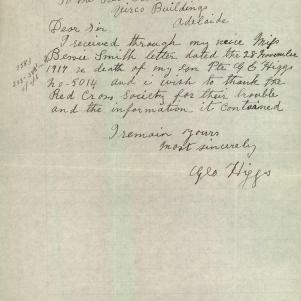 To the
Verco Buildings
Adelaide
Dear Sir
I received through my neice Miss
Bernie Smith letter dated the 28 November
1917 re death of my son Pte G C Higgs
No-5014 and i wish to thank the
Red Cross Society for their trouble
and the information it contained
I remain yours
most sincerely
Geo Higgs